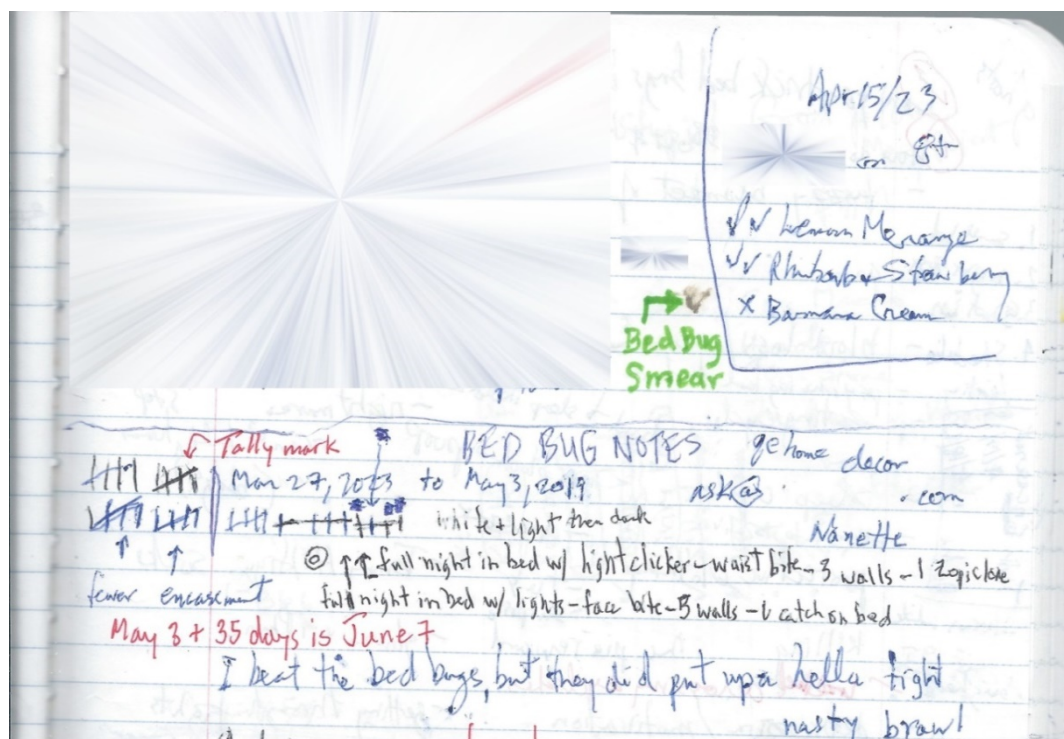 Apr 15/23
on
✓✓ Lemon Merange
✓✓ Rhubarb + Strawberry
X Banana Cream
Bed Bug
Smear
Tally mark
BED BUG NOTES
ge home decor
Mar 27, 2023 to May 3, 2019
ask@
.com
white + light then dark
Nanette
full night in bed w/ light clicker - waist bite - 3 walls - 1
fewer encasement
full night in bed w/ lights - face bite - 3 walls - catch on bed
May 3 + 35 days is June 7
I beat the bed bugs, but they did put up a hella fight
nasty brawl